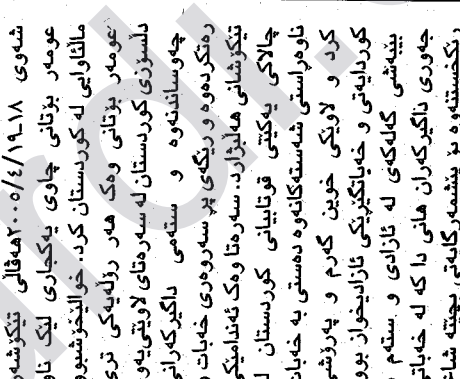 شەوی ١٨ـ١٩/٤/٢٠٠٥ هەڤاڵی تێکۆشەر
عومەر بۆتانی چاوی یەکجاری لێک ناو
ماڵئاوایی لە کوردستان کرد. خوالێخۆشبوو
عومەر بۆتانی وەک هەر رۆڵەیەکی تری
دڵسۆزی کوردستان لە سەرەتای لاوێتی‌یەو
چەوساندنەوە و ستەمی داگیرکەرانی
رەتکردەوە و رێگەی پڕ سەروەری خەبات و
تێکۆشانی هەڵبژارد. سەرەتا وەک ئەندامێکی
چالاکی یەکێتی قوتابیانی کوردستان ل
ناوەڕاستی شەستەکانەوە دەستی بە خەبات
کرد و لاوێکی خوێن گەرم و پەرۆشی
کوردایەتی و خەباتگێڕێکی ئازادیخواز بوو
بێبەشی گەلەکەی لە ئازادی و ستەم و
جەوری داگیرکەران هانی دا کە لە خەباتی
رێکخستنەوە بۆ پێشمەرگایەتی بچێتە شاخ